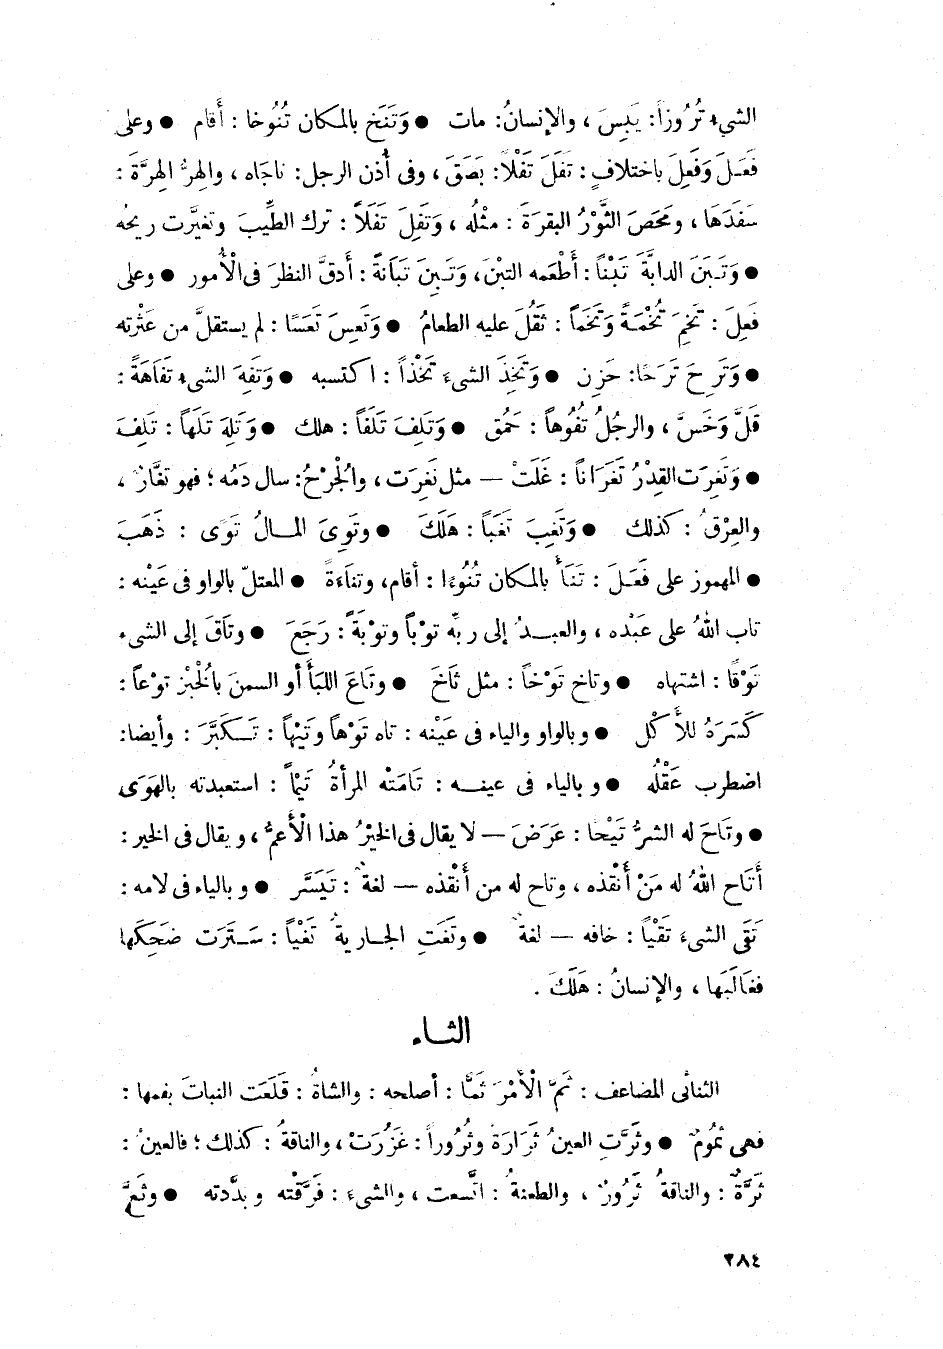 الشىء تُرُوزاً: يَبِسَ ، والإنسانُ: مات ● وَتَنَخ بالمكان تُنُوخا : أَقام ● وعلى
فَعَلَ وَفَعِلَ باختلافٍ : تَفَلَ تَفْلاً: بَصَقَ ، وفى أُذن الرجل: ناجَاه ، والهِرُّ الهِرَّةَ :
سَفَدَهَا ، ومَحَصَ الثَّوْرُ البقرَةَ : مثْلُه ، وَتَفِلَ تَفَلاً : ترك الطِّيبَ وتغيَّرت ريحُه
● وَتَبَنَ الدابَّةَ تَبْناً : أَطْعَمه التبْنَ، وَتَبِنَ تَبَانَةً : أَدقَّ النظرَ فى الْأُمور ● وعلى
فَعِلَ : تَخِمَ تُخْمَةً وَتَخَماً : ثَقُلَ عليه الطعامُ ● وَتَعِسَ تَعَسًا : لم يستقلَّ من عَثْرته
● وَتَرِحَ تَرَحًا: حَزِن ● وَتَخِذَ الشىءَ تَخْذاً : اكتسبه ● وَتَفِهَ الشىء تَفَاهَةً :
قَلَّ وَخَسَّ ، والرجُلُ تُفُوهاً : حَمُق ● وَتَلِفَ تَلَفاً : هلك ● وَتَلِهَ تَلَهاً : تَلِفَ
● وَتَغِرَت القِدْرُ تَغَرَاناً : غَلَتْ — مثل نَغِرَت ، والْجُرْحُ: سال دَمُه ؛ فهو تَغَّارٌ ،
والعِرْقُ : كذلك ● وَتَغِبَ تَغَباً : هَلَكَ ● وتَوِىَ المالُ تَوًى : ذَهَبَ
● المهموز على فَعَلَ : تَنَأَ بالمكان تُنُوءًا : أقام، وتَنَاءَةً ● المعتلّ بالواو فى عَيْنه :
تاب اللهُ على عَبْده ، والعبدُ إلى ربِّه توْباً وتوْبةً : رَجَعَ ● وتَاقَ إلى الشىء
تَوْقًا : اشتهاه ● وتاخ تَوْخاً : مثل ثَاخَ ● وتَاعَ اللبَأَ أو السمنَ بالْخبْز توْعاً :
كَسَرَهُ للأَكْل ● وبالواو والياء فى عَيْنه : تاه تَوْهاً وتَيْهاً : تَكَبَّرَ : وأيضا:
اضطرب عَقْلُه ● وبالياء فى عينه : تَامَتْه المرأةُ تَيْماً : استعبدته بالهَوَى
● وتَاحَ له الشرُّ تَيْحا : عَرَضَ — لا يقال فى الخيْرُ هذا الْأَعمُّ ، ويقال فى الخير :
أَتَاح اللهُ له مَنْ أَنقْذه ، وتاح له من أَنقْذه — لغةٌ : تَيَسَّر ● وبالياء فى لامه :
تَقَى الشىءَ تَقْيَاً : خافه — لغةٌ ● وتَغَتِ الجاريةُ تَغْياً : سَتَرَت ضَحِكَها
فغَالَبَها ، والإنسانُ : هَلَكَ .
الثاء
الثنائى المضاعف : ثَمَّ الْأَمْرَ ثَمًّا : أصلحه : والشاةُ : قَلَعَت النباتَ بفمها :
فهى ثَمُومٌ ● وثَرَّتِ العينُ ثَرَارَةً وثُرُوراً : غَزُرَتْ ، والناقةُ : كذلك ؛ فالعينُ :
ثَرَّةٌ : والناقةُ ثَرُورٌ ، والطعنةُ : اتَّسعت ، والشىءَ : فَرَّقْته وبدَّدته ● وثَعَّ
٢٨٤